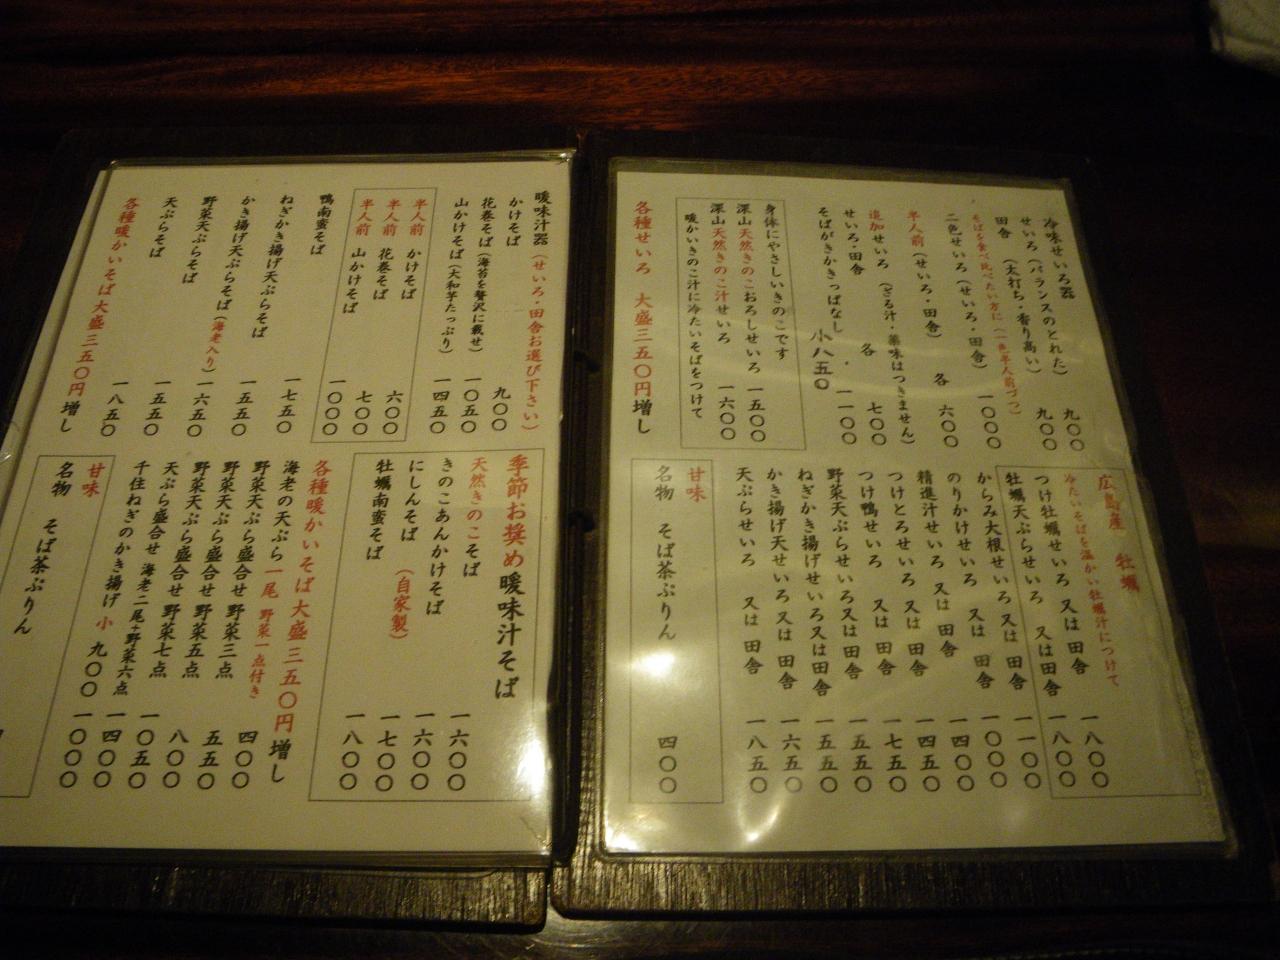 冷味せいろ器
せいろ（バランスのとれた） 九〇〇
田舎（太打ち・香り高い） 九〇〇
そばを食べ比べたい方に（一色半人前づつ）
二色せいろ（せいろ・田舎） 一〇〇〇
半人前（せいろ・田舎） 各 六〇〇
追加せいろ（ざる汁・薬味はつきません）
せいろ・田舎 各 七〇〇
そばがきかきっぱなし 小八五〇 一一〇〇
身体にやさしいきのこです
深山天然きのこおろしせいろ 一五〇〇
深山天然きのこ汁せいろ 一六〇〇
暖かいきのこ汁に冷たいそばをつけて
各種せいろ 大盛三五〇円増し
広島産 牡蠣
冷たいそばを温かい牡蠣汁につけて
つけ牡蠣せいろ 又は田舎 一八〇〇
牡蠣天ぷらせいろ 又は田舎 一八〇〇
からみ大根せいろ 又は 田舎 一一〇〇
のりかけせいろ 又は 田舎 一〇〇〇
精進汁せいろ 又は 田舎 一四〇〇
つけとろせいろ 又は 田舎 一四五〇
つけ鴨せいろ 又は 田舎 一七五〇
野菜天ぷらせいろ又は 田舎 一五五〇
ねぎかき揚げせいろ又は 田舎 一五五〇
かき揚げ天せいろ 又は 田舎 一六五〇
天ぷらせいろ 又は 田舎 一八五〇
甘味
名物 そば茶ぷりん 四〇〇
暖味汁器（せいろ・田舎お選び下さい）
かけそば 九〇〇
花巻そば（海苔を贅沢に載せ） 一〇五〇
山かけそば（大和芋たっぷり） 一四五〇
半人前 かけそば 六〇〇
半人前 花巻そば 七〇〇
半人前 山かけそば 一〇〇〇
鴨南蛮そば 一七五〇
ねぎかき揚げ天ぷらそば 一五五〇
かき揚げ天ぷらそば（海老入り） 一六五〇
野菜天ぷらそば 一五五〇
天ぷらそば 一八五〇
各種暖かいそば 大盛三五〇円増し
季節お奨め暖味汁そば
天然きのこそば 一六〇〇
きのこあんかけそば 一六〇〇
にしんそば（自家製） 一七〇〇
牡蠣南蛮そば 一八〇〇
各種暖かいそば 大盛三五〇円増し
海老の天ぷら一尾 野菜一点付き 四〇〇
野菜天ぷら盛合せ 野菜三点 五五〇
野菜天ぷら盛合せ 野菜五点 八〇〇
野菜天ぷら盛合せ 野菜七点 一〇五〇
天ぷら盛合せ 海老二尾と野菜六点 一四〇〇
千住ねぎのかき揚げ 小 九〇〇 一〇〇〇
甘味
名物 そば茶ぷりん